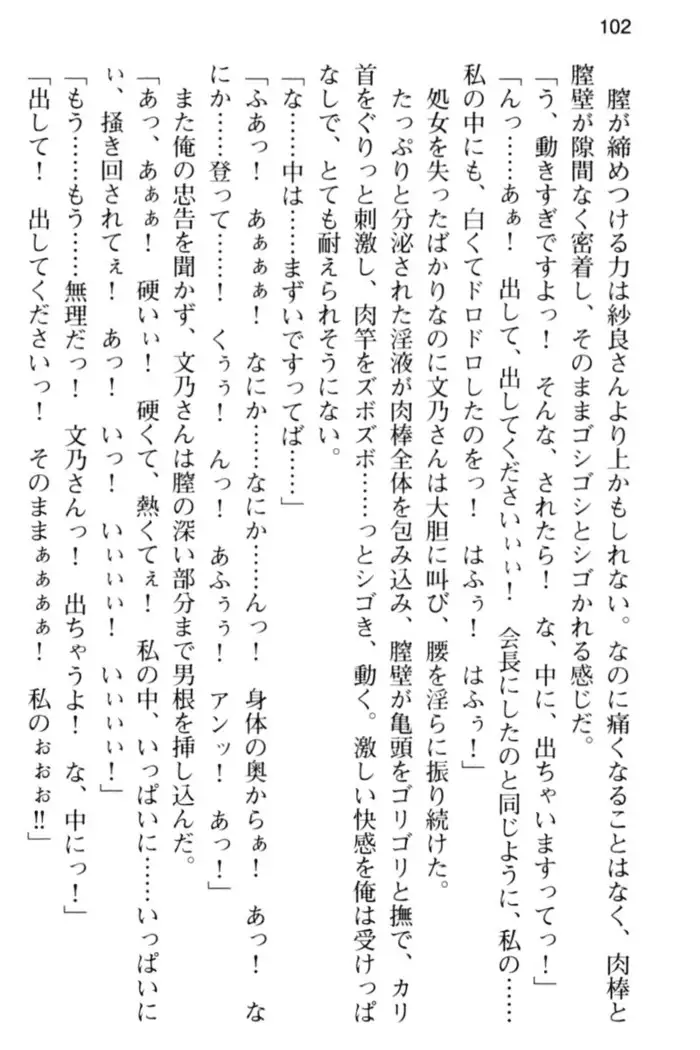 102
膣が締めつける力は紗良さんより上かもしれない。なのに痛くなることはなく、肉棒と
膣壁が隙間なく密着し、そのままゴシゴシとシゴかれる感じだ。
「う、動きすぎですよっ！　そんな、されたら！　な、中に、出ちゃいますってっ！」
「んっ……あぁ！　出して、出してくださいぃぃ！　会長にしたのと同じように、私の……
私の中にも、白くてドロドロしたのをっ！　はふぅ！　はふぅ！」
処女を失ったばかりなのに文乃さんは大胆に叫び、腰を淫らに振り続けた。
たっぷりと分泌された淫液が肉棒全体を包み込み、膣壁が亀頭をゴリゴリと撫で、カリ
首をぐりっと刺激し、肉竿をズボズボ……っとシゴき、動く。激しい快感を俺は受けっぱ
なしで、とても耐えられそうにない。
「な……中は……まずいですってば……」
「ふあっ！　あぁぁぁ！　なにか……なにか……んっ！　身体の奥からぁ！　あっ！　な
にか……登って……！　くぅぅ！　んっ！　あふぅぅ！　アンッ！　あっ！」
また俺の忠告を聞かず、文乃さんは膣の深い部分まで男根を挿し込んだ。
「あっ、あぁぁ！　硬いぃ！　硬くて、熱くてぇ！　私の中、いっぱいに……いっぱいに
ぃ、掻き回されてぇ！　あっ！　いっ！　いぃぃぃ！　いぃぃぃ！」
「もう……もう……無理だっ！　文乃さんっ！　出ちゃうよ！　な、中にっ！」
「出して！　出してくださいっ！　そのままぁぁぁぁ！　私のぉぉぉ!!」